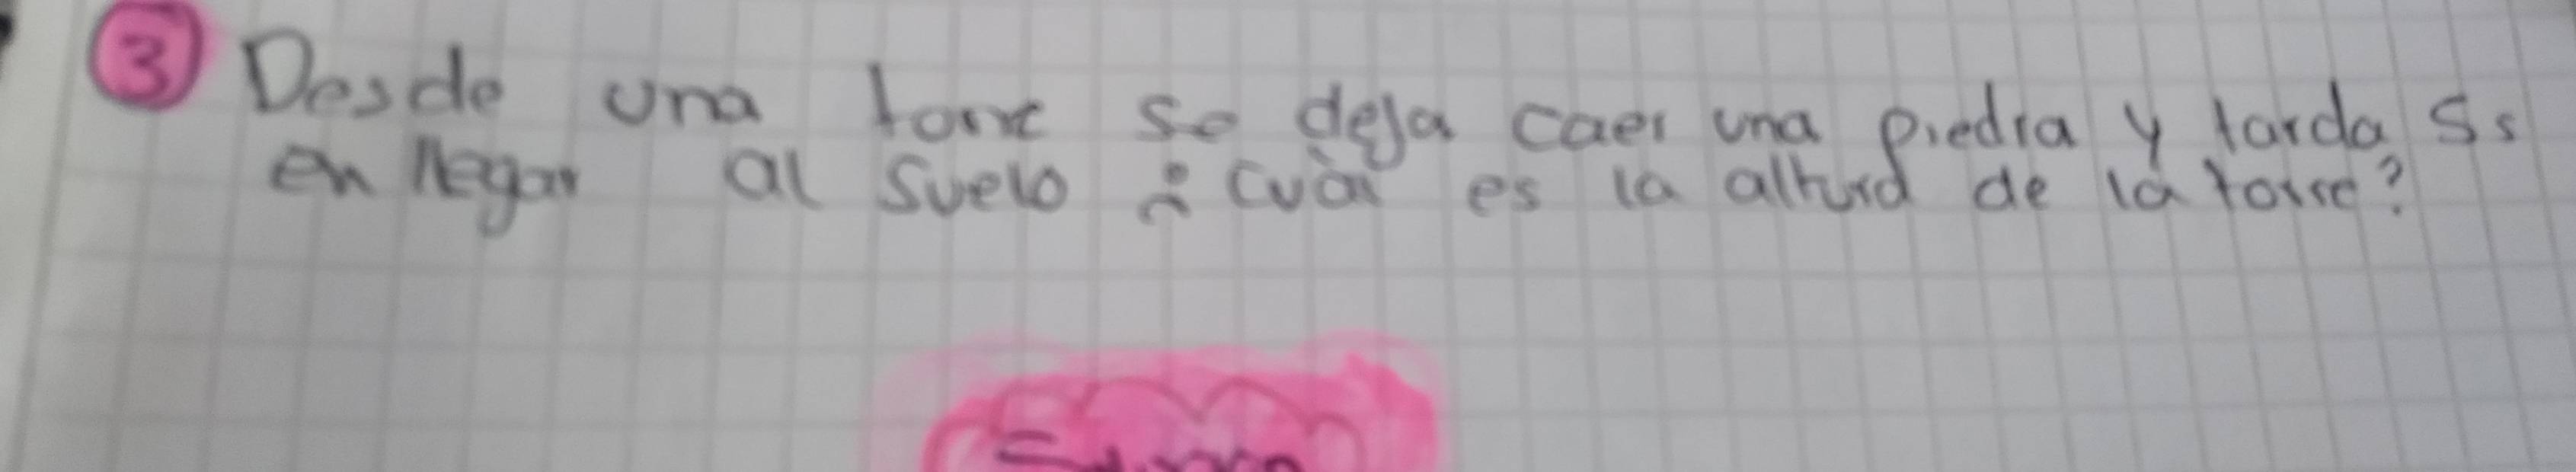 3 Desde una torre se deja caer una piedra y tarda 5s
en llegar al suelo ¿cuàl es la altura de la torre?